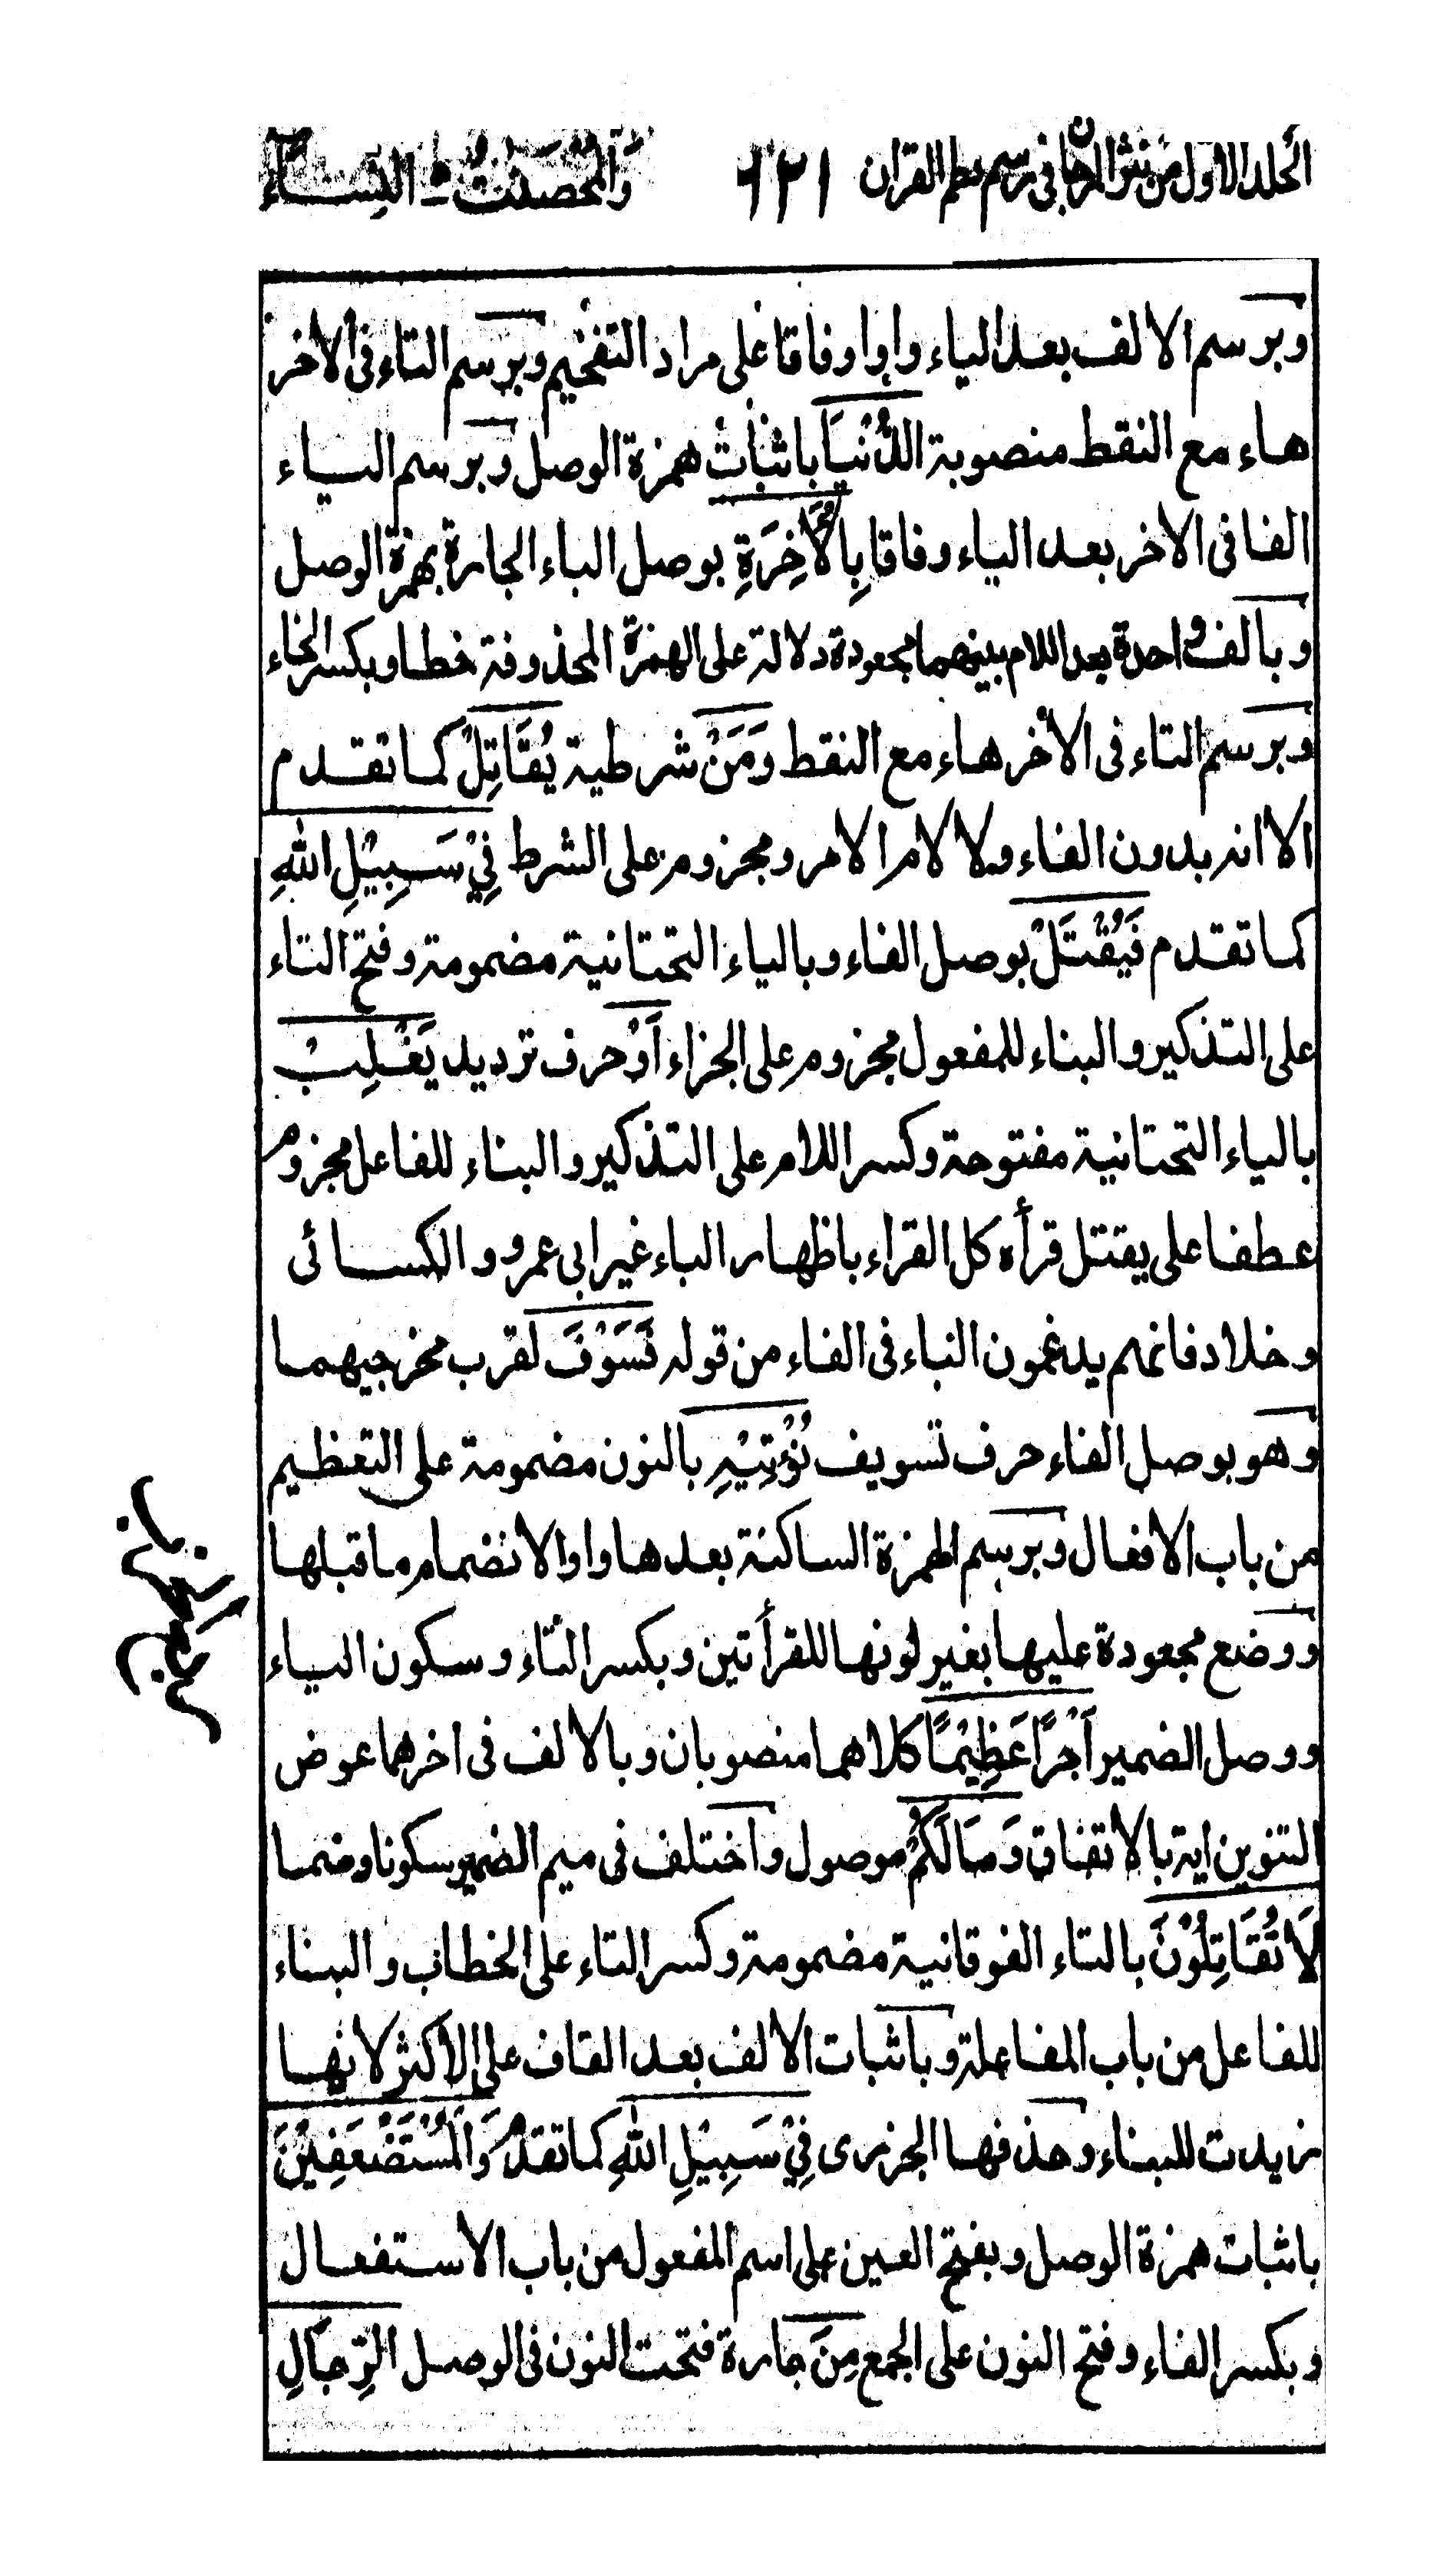 الجلد الاول من نثر المرجان فى رسم نظم القران ٦٢١ وَالْمُحْصَنٰتُ - النِّسَآءُ
وبرسم الالف بعد الياء واوا وفاقا على مراد التفخيم وبرسم التاء فى الاخر
هاء مع النقط منصوبة الدُّنْيَا باثبات همزة الوصل وبرسم الياء
الفا فى الاخر بعد الياء وفاقا بِالْاٰخِرَةِ بوصل الباء الجارة بهمزة الوصل
وبالف واحدة بعد اللام بينهما مجعودة دلالة على الهمزة المحذوفة خطا وبكسر الخاء
وبرسم التاء فى الأخر هاء مع النقط وَمَنْ شرطية يُقَاتِلْ كما تقدم
الا انه بدون الفاء ولا لام الامر ومجزوم على الشرط فِيْ سَبِيْلِ اللّٰهِ
كما تقدم فَيُقْتَلْ بوصل الفاء وبالياء التحتانية مضمومة وفتح التاء
على التذكير والبناء للمفعول مجزوم على الجزاء اَوْ حرف ترديد يَغْلِبْ
بالياء التحتانية مفتوحة وكسر اللام على التذكير والبناء للفاعل مجزوم
عطفا على يقتل قرأه كل القراء باظهار الباء غير ابى عمرو والكسائى
وخلاد فانهم يدغمون الباء فى الفاء من قوله فَسَوْفَ لقرب مخرجيهما
وهو بوصل الفاء حرف تسويف نُؤْتِيْهِ بالنون مضمومة على التعظيم
من باب الافعال وبرسم الهمزة الساكنة بعدها واوا لانضمام ما قبلها
ووضع مجعودة عليها بغير لونها للقرأتين وبكسر التاء وسكون الياء
ووصل الضمير اَجْرًا عَظِيْمًا كلاهما منصوبان وبالالف فى اخرهما عوض
التنوين اية بالاتفاق وَمَا لَكُمْ موصول واختلف فى ميم الضمير سكونا وضما
لَا تُقَاتِلُوْنَ بالتاء الفوقانية مضمومة وكسر التاء على الخطاب والبناء
للفاعل من باب المفاعلة وباثبات الالف بعد القاف على الاكثر لانها
زيدت للبناء وحذفها الجزرى فِيْ سَبِيْلِ اللّٰهِ كما تقدم وَالْمُسْتَضْعَفِيْنَ
باثبات همزة الوصل وبفتح العين على اسم المفعول من باب الاستفعال
وبكسر الفاء وفتح النون على الجمع مِنَ جارة فتحت النون فى الوصل الرِّجَالِ